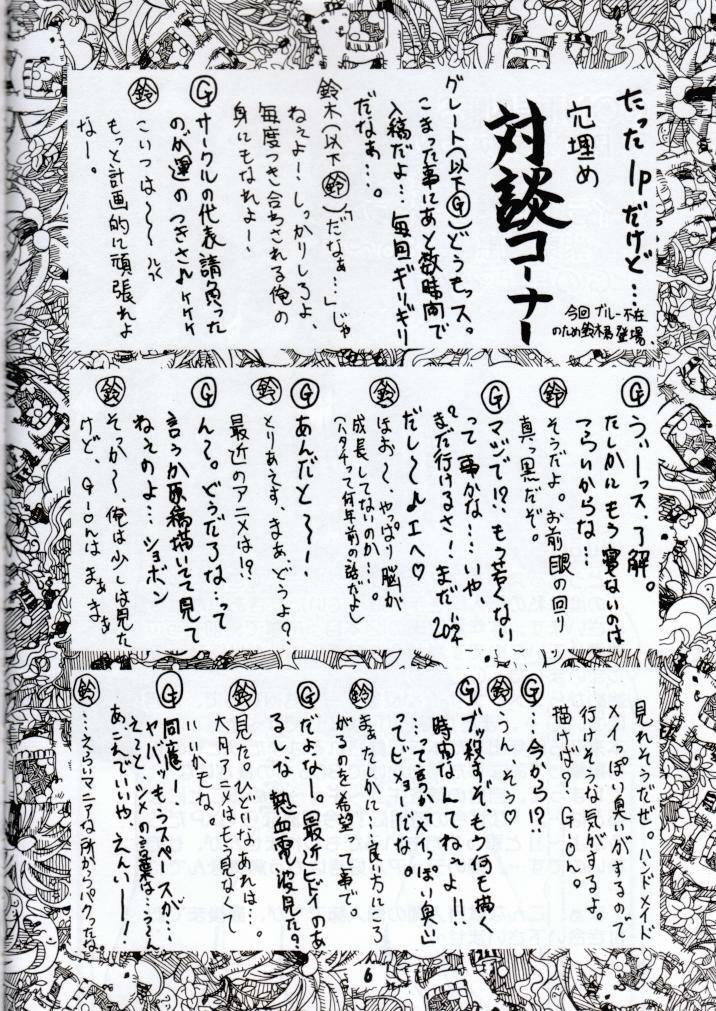 たった1Pだけど…
穴埋め
対談コーナー
今回ブルー不在
のため鈴木君登場、
グレート(以下Ⓖ)どうもッス。
こまった事にあと数時間で
入稿だよ…毎回ギリギリ
だなぁ…。
鈴木(以下㊙鈴)「だなぁ…」じゃ
ねぇよ!しっかりしろよ、
毎度つき合わされる俺の
身にもなれよー!
Ⓖサークルの代表請負った
のが運のつきさ♪ケケケ
鈴 こいつは〜〜ル
もっと計画的に頑張れよ
なー。
Ⓖ うぃーっス了解。
たしかにもう寝ないのは
つらいからな…
鈴 そうだよ。お前眼の回り
真っ黒だぞ。
Ⓖ マジで!?もう若くない
って事かな…いや、
まだ行けるさ!まだ20才
だし〜♪エヘ♡
鈴 ほぉ〜、やっぱり脳が
成長してないのか…。
(ハタチって何年前の話だよ)
Ⓖ あんだと〜!
鈴 とりあえず、まあどうよ?
最近のアニメは!?
Ⓖ ん〜。どうだろな…って
言うか原稿描いてて見て
ねぇのよ…ショボン
鈴 そっか〜、俺は少しは見た
けど、G-onはまぁまぁ
見れそうだぜ。ハンドメイド
メイっぽい臭いがするので
行けそうな気がするよ。
描けば?GOGO。
Ⓖ …今から!?
鈴 うん、そう♡
Ⓖ ブッ殺すぞ。もう何も描く
時間なんてねーよ!!
…って言うか“メイっぽい臭い”
ってビミョーだな。
鈴 まぁたしかに…良い方にころ
がるのを希望って事で
Ⓖ だよなー。最近ヒドイのあ
るしな熱血電波見た?
鈴 見た。ひどいなあれは…。
大月アニメはもう見なくて
いいかもな。
Ⓖ 同感ー!
ヤバッもうスペースが…
えーと、シメの言葉は…〜ん
あこんでいいや えんいーーー!
鈴 …えらいマニアな所からパクったね。
6